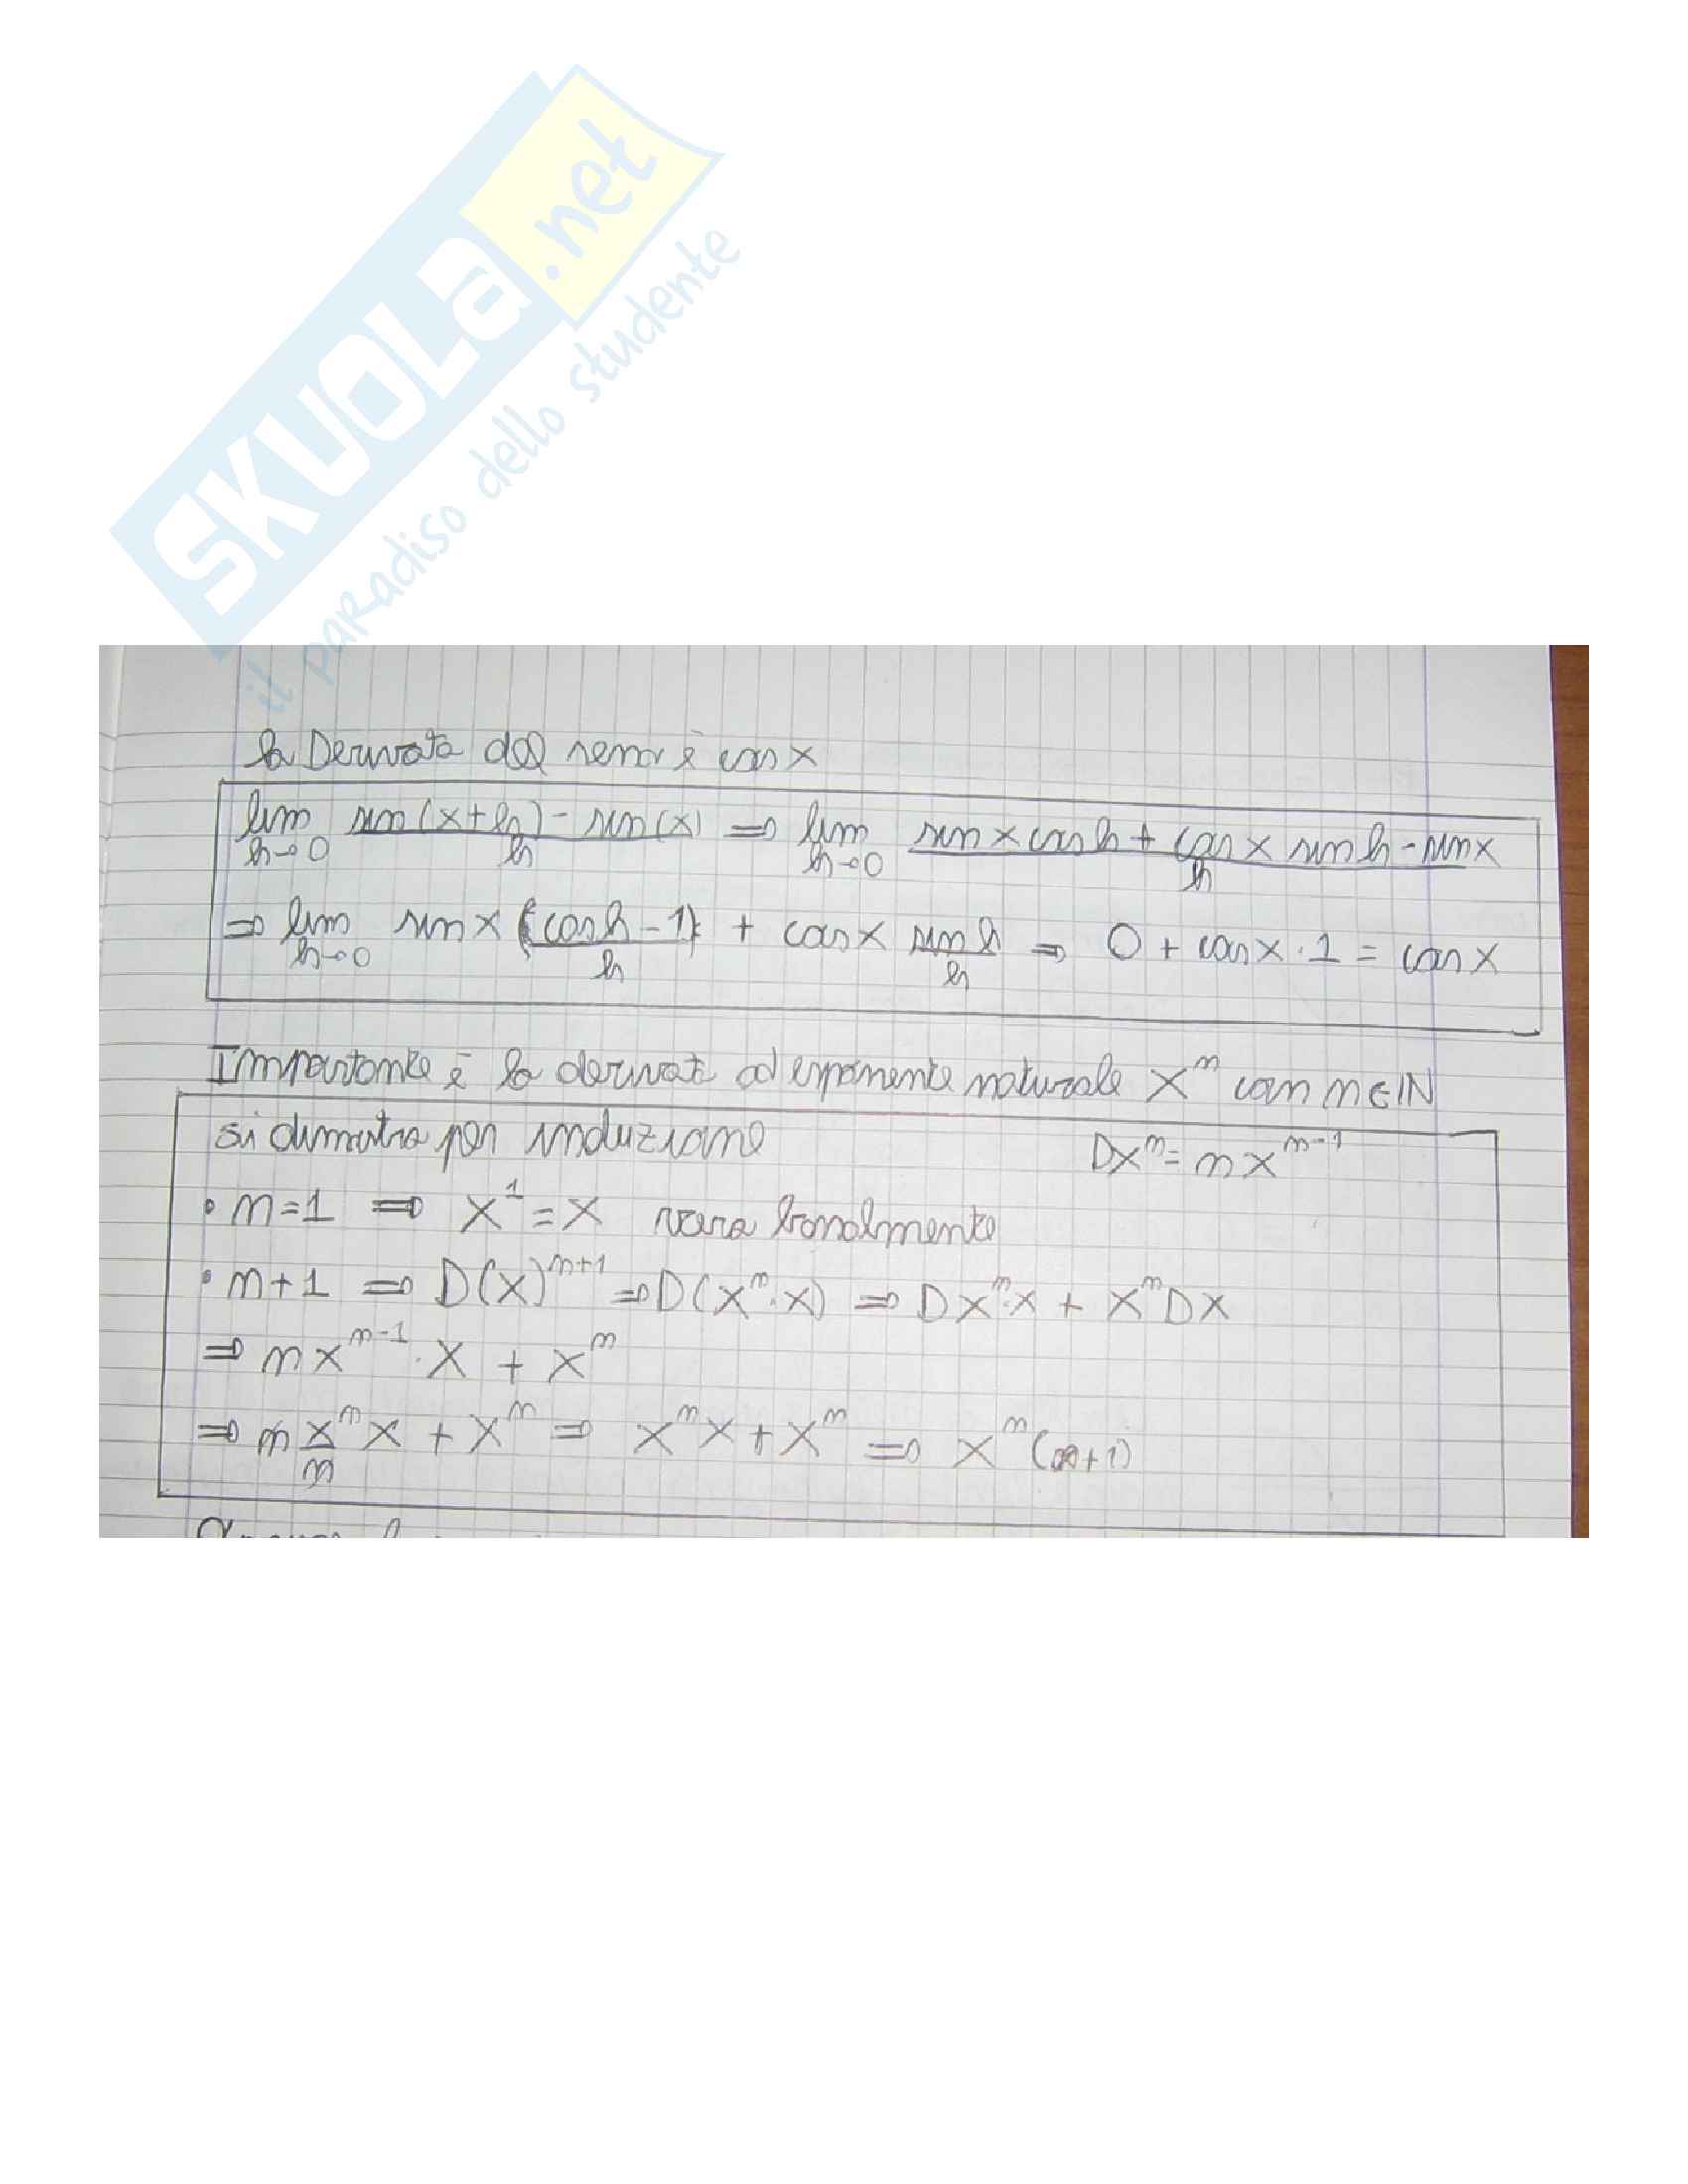 SKUOLa.net
il paradiso dello studente
la Derivata del seno è cos x
lim h→0 sin(x+h) - sin(x) / h ⇒ lim h→0 sin x cos h + cos x sin h - sin x / h
⇒ lim h→0 sin x (cos h - 1) / h + cos x sin h / h ⇒ 0 + cos x · 1 = cos x
Importante è la derivat ad esponente naturale xⁿ con n ∈ ℕ
si dimostra per induzione Dxⁿ = n xⁿ⁻¹
• n=1 ⇒ x¹ = x vera banalmente
• n+1 ⇒ D(x)ⁿ⁺¹ ⇒ D(xⁿ·x) ⇒ Dxⁿ·x + xⁿDx
⇒ n xⁿ⁻¹ · x + xⁿ
⇒ n xⁿ/n x + xⁿ ⇒ xⁿx + xⁿ ⇒ xⁿ(n+1)